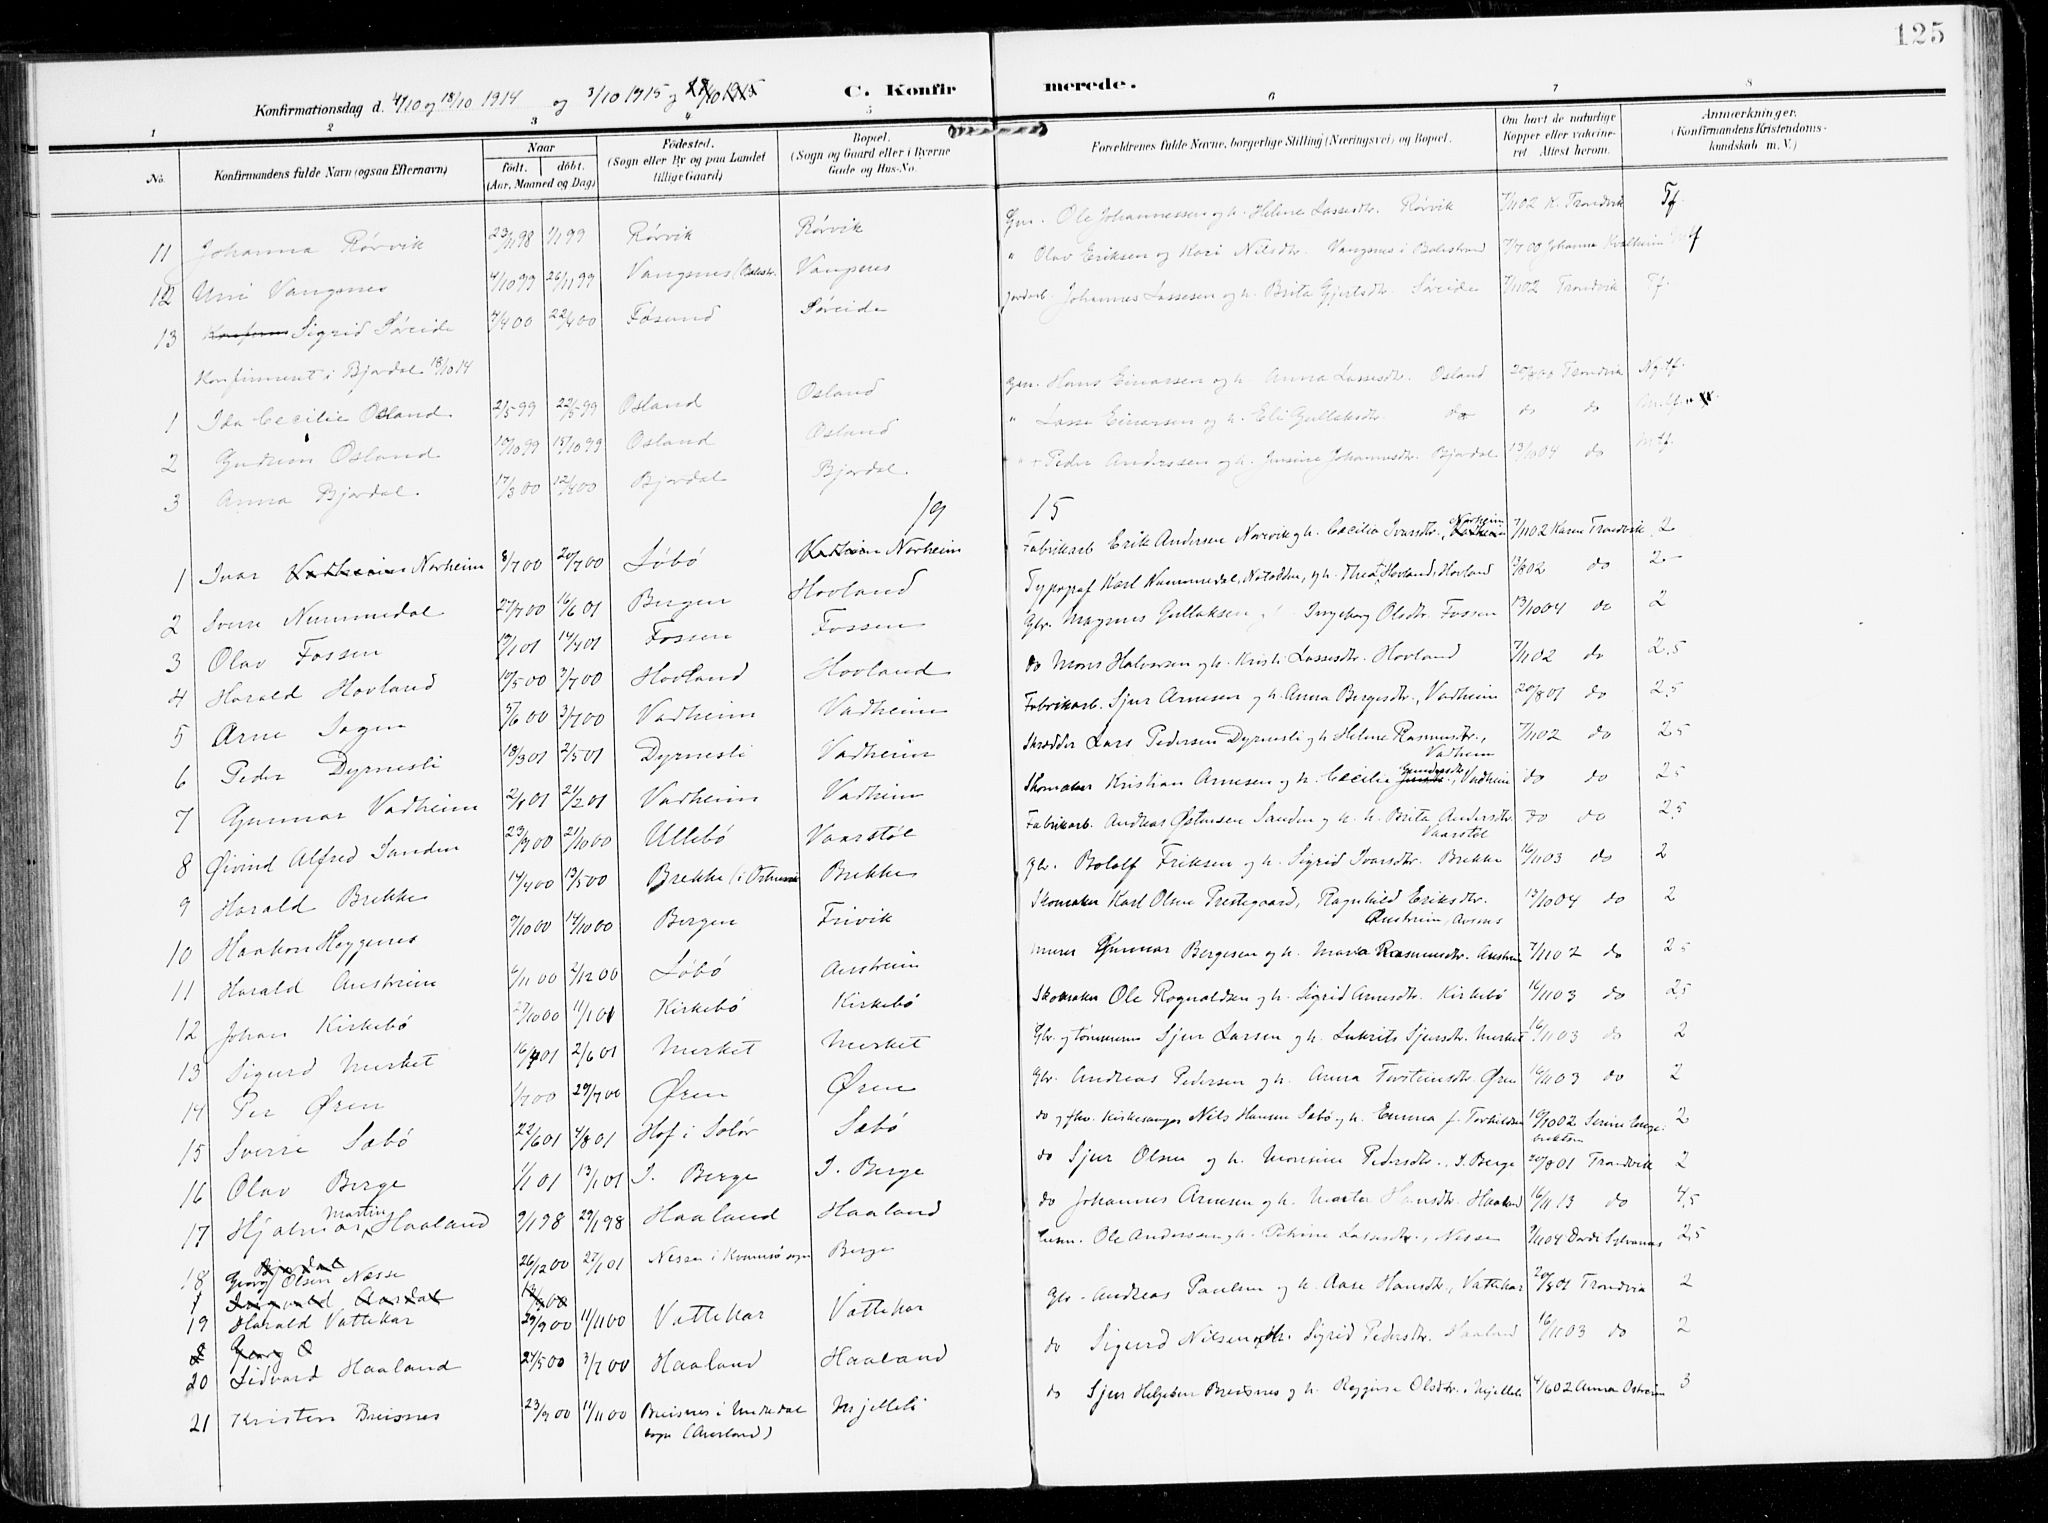 125
Konfirmationsdag d. 4/10 og 18/10 1914 og 3/10 1915 og
C. Konfirmerede.
1 2 3 4 5 6 7 8
No. Konfirmandens fulde Navn (ogsaa Efternavn) Naar født. døbt. (Aar, Maaned og Dag) Fødested. (Sogn eller By og paa Landet tillige Gaard) Bopæl. (Sogn og Gaard eller i Byerne Gade og Hus-No. Forældrenes fulde Navne, borgerlige Stilling (Næringsvei) og Bopæl. Om havt de naturlige Kopper eller vakcineret. Attest herom. Anmærkninger. (Konfirmandens Kristendomskundskab m. V.)
11 Johanna Rørvik 23/11 98 1/1 99 Rørvik Rørvik Gm. Ole Johannessen og h. Helene Lassesdtr. Rørvik 7/11 02 K. Trondvik Tf.
12 Uni Vangsnes 4/10 99 26/11 99 Vangsnes (Balestr. Vangsnes " Olav Eriksen og Kari Nilsdtr. Vangsnes i Balestrand 7/7 00 Johanna
13 Sigrid Søreide 4/4 00 22/4 00 Føsund Søreide Jordarb. Johannes Lassesen og h. Brita Gjertsdtr. Søreide 7/11 02 Trondvik Tf.
Konfirmert i Bjordal 18/10 14
1 Ida Cecilie Osland 2/5 99 22/5 99 Osland Osland Gm. Hans Einarsen og h. Anna Lassesdtr. Osland 20/8 00 Trondvik Ngtf.
2 Gudrun Osland 10/10 99 15/10 99 Osland Osland " Lasse Einarsen og h. Eli Gullaksdtr. do do do
3 Anna Bjordal 17/3 00 12/4 00 Bjordal Bjordal " Peder Anderssen og h. Jensine Johannesdtr. Bjordal 13/10 04 do Mtf.
19 15
1 Ivar Norheim 8/7 00 20/7 00 Løbø Norheim Fabrikarb Erik Andersen Norevik og h. Cecilia Ivarsdtr., Norheim 7/11 02 Karen Trondvik 2
2 Sverre Nummedal 27/7 00 16/6 01 Bergen Hovland Typograf Karl Nummedal, Notodden, og h. Thea Hovland, Hovland do 2
3 Olav Fossen 19/1 01 14/4 01 Fossen Fossen Gbr. Magnus Gullaksen Ingeborg Olsdtr. Fossen 13/10 04 do 2
4 Harald Hovland 10/5 00 3/7 00 Hovland Hovland do Mons Halvorsen og h. Kristi Lassesdtr. Hovland 7/11 02 do 2,5
5 Arne Sogn 5/6 00 3/7 00 Vadheim Vadheim Fabrikarb. Sjur Arnesen og h. Anna Bergesdtr., Vadheim 20/8 01 do 2,5
6 Peder Dyrnesli 18/3 01 2/5 01 Dyrnesli Vadheim Skrædder Lars Pedersen Dyrnesli og h. Helene Rasmusdtr., Vadheim 7/11 02 do 2,5
7 Gunnar Vadheim 2/1 01 21/2 01 Vadheim Vadheim Skomaker Kristian Arnesen og h. Cecilie Gundersdtr., Vadheim do do 2,5
8 Øivind Alfred Sanden 23/9 00 21/10 00 Ullebø Vaarstøl Fabrikarb. Andreas Østensen Sanden og h. Brita Andersdtr. Vaarstøl do do 2,5
9 Harald Brekke 14/4 00 13/5 00 Brekke (i Brekke Gbr. Bololf Eriksen og h. Sigrid Ivarsdtr. Brekke 16/11 03 do 2
10 Haakon Høygenes 9/10 00 14/10 00 Bergen Frivik Skomaker Karl Olsen Prestegaard, Ragnhild Eriksdtr. Østreim, 13/10 04 do 2
11 Harald Austreim 6/11 00 2/12 00 Løbø Austreim Murer Gunnar Bergesen og h. Maria Rasmusdtr. Austreim 7/11 02 do 2,5
12 Johan Kirkebø 27/10 00 11/1 01 Kirkebø Kirkebø Skomaker Ole Rognaldsen og h. Sigrid Arnesdtr. Kirkebø 16/11 03 do 2,5
13 Sigurd Merket 16/4 01 2/6 01 Merket Merket Gbr. og tømmerm Sjur Larsen og h. Lukrits Sjursdtr. Merket 16/11 03 do 2
14 Per Øren 1/7 00 29/7 00 Øren Øren Gbr. Andreas Pedersen og h. Anna Torsteinsdtr. Øren 16/11 03 do 2
15 Sverre Sæbø 22/6 01 4/8 01 Hof i Solør Sæbø do og fhv. Kirkesanger Nils Hansen Sæbø og h. Emma f. Torkildsen 10/10 02 Serine Engebrektsen 2
16 Olav Berge 1/1 01 13/1 01 I. Berge I. Berge do Sjur Olsen og h. Monsine Pedersdtr., I. Berge 20/8 01 Trondvik 2
17 Hjalmar Martin Haaland 9/1 98 29/1 98 Haaland Haaland do Johannes Arnesen og h. Marta Hansdtr. Haaland 16/11 13 do 4,5
18 Georg Olsen Næsse 26/12 00 27/1 01 Nesse i Kvamsø sogn Berge Ole Andersen og h. Petrine Lassesdtr., Nesse 9/11 04 Dorde Sylvarnes 2,5
19 Harald Vattekar 29/9 00 11/11 00 Vattekar Vattekar Gbr. Andreas Paulsen og h. Aase Hansdtr., Vattekar 20/8 01 Trondvik 2
20 Sidvard Haaland 27/5 00 3/7 00 Haaland Haaland do Sigurd Nilsen og h. Sigrid Pedersdtr. Haaland 16/11 03 do 2
21 Kristen Breisnes 23/9 00 11/11 00 Breisnes i Undredal sogn (Aurland) Mjelleli do Sjur Helgesen Breisnes og h. Regine Olsdtr. Mjelleli 4/6 02 Anna Østreim 3